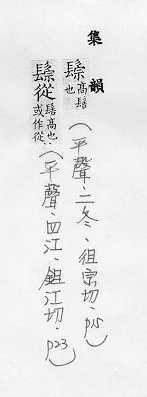 集韻
鬃高髻也(平聲．二冬．徂宗切．p15)
鬃從髻高也或作從(平聲．四江．鉏江切．p23)